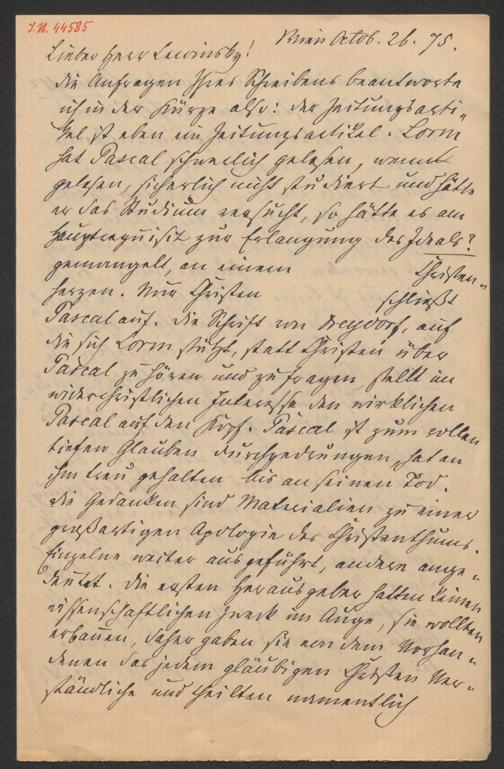 I.N. 44585
Wien Octob. 26. 75.
Lieber Herr Lewinsky!
Die Anfragen Ihres Schreibens beantworte
ich in der Kürze also: der Zeitungsarti-
kel ist eben ein Zeitungsartikel. Lorm
hat Pascal schwerlich gelesen, wenn
gelesen, sicherlich nicht studiert und hätte
er das Studium versucht, so hätte es am
Hauptrequisit zur Erlangung des Ideals?
gemangelt, an einem Christen-
herzen. Nur Christen schließt
Pascal auf. Die Schrift von Dreydorf, auf
die sich Lorm stützt, statt Christen über
Pascal zu hören und zu fragen stellt im
widerchristlichen Interesse den wirklichen
Pascal auf den Kopf. Pascal ist zum vollen
tiefen Glauben durchgedrungen, hat an
ihm treu gehalten bis an seinen Tod.
Die Gedanken sind Materialien zu einer
großartigen Apologie des Christenthums.
Einzelne weiter ausgeführt, andere ange-
deutet. Die ersten Herausgeber hatten keinen
wissenschaftlichen Zweck im Auge, sie wollten
erbauen, daher gaben sie von dem Vorhan-
denen das jedem gläubigen Christen Ver-
ständliche und theilten namentlich